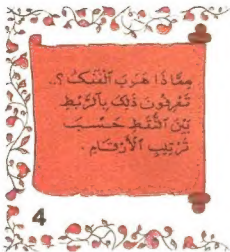 مِمَّاذَا هَرَبَ ٱلْفَنَكُ ؟..
تَعْرِفُونَ ذٰلِكَ بِٱلرَّبْطِ
بَيْنَ ٱلنُّقَطِ حَسْبَ
تَرْتِيبِ ٱلْأَرْقَامِ .
4